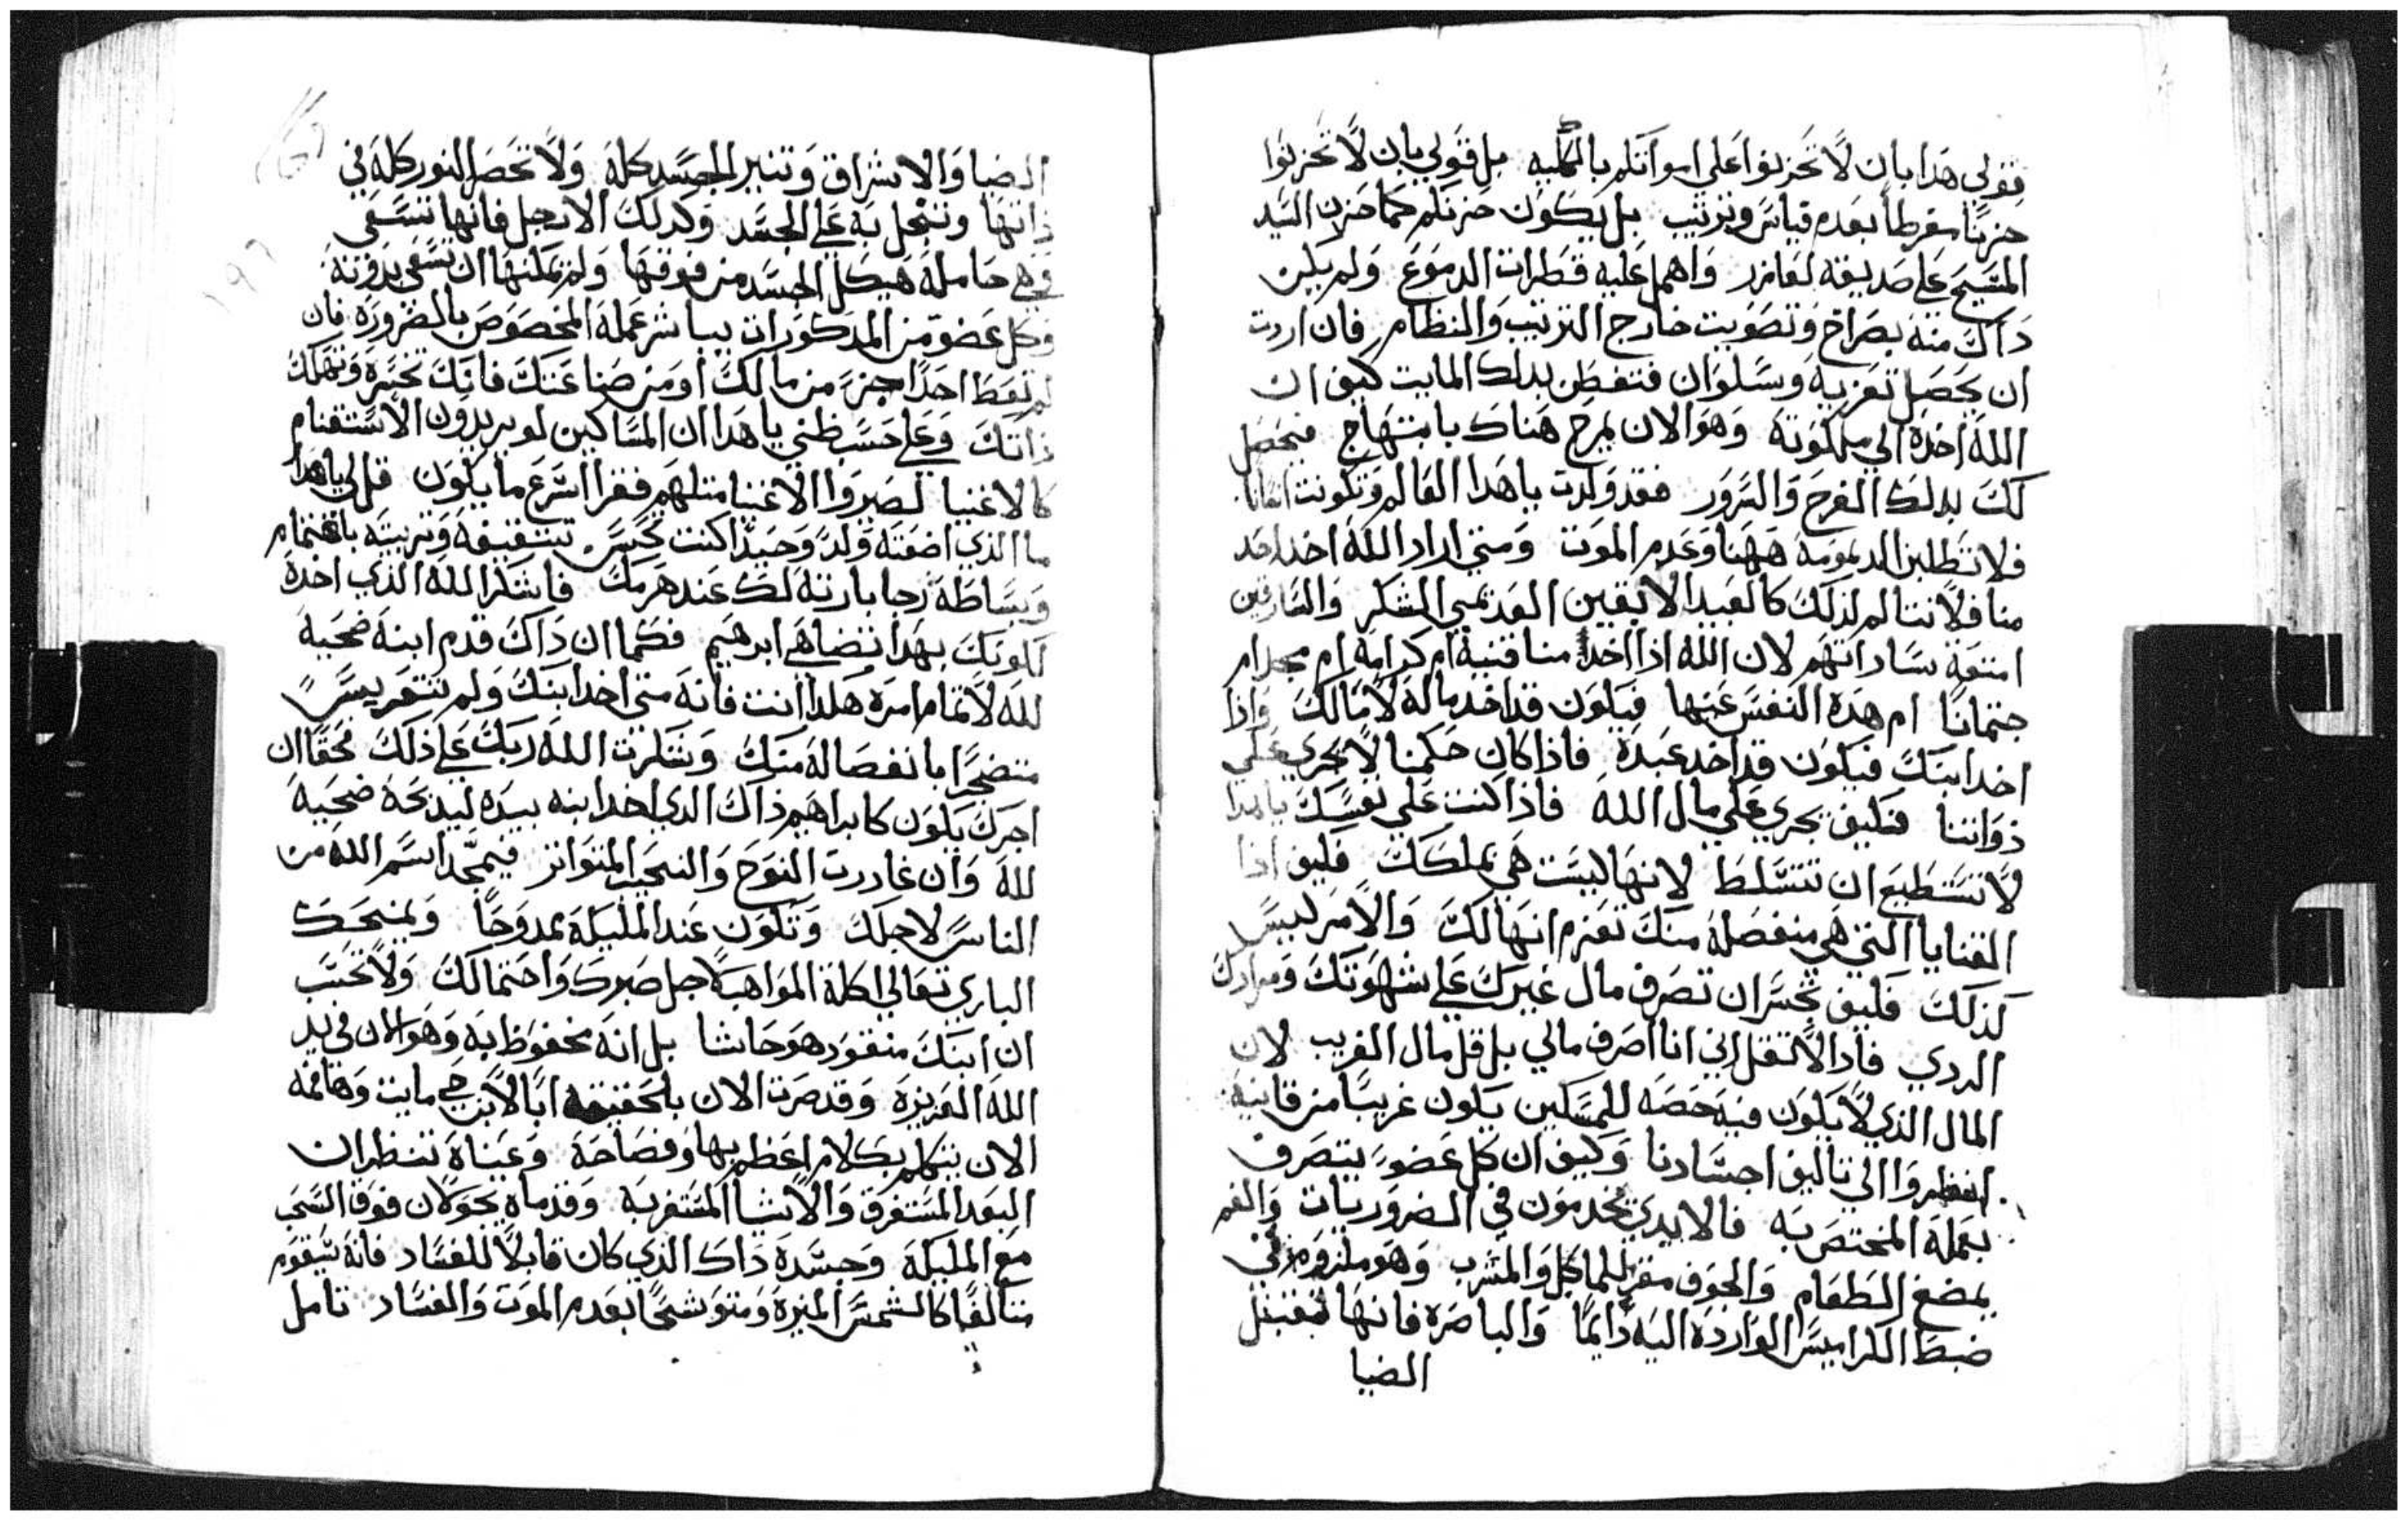 قولي هذا بان لا تحزنوا على امواتكم بالكليه بل قولي بان لا تحزنوا
حزنًا مفرطاً بعدم قياس وترتيب بل يكون حزنكم كما حزن السيد
المسيح على صديقه لعازر واهمل عليه قطرات الدموع ولم يكن
ذاك منه بصراخ وتصويت خارج الترتيب والنظام فان اردت
ان يحصل تعزية وسلوان فتفطن بذلك المايت كيف ان
الله اخذه الي ملكوته وهو الان يمرح هناك بابتهاج فيحصل
لك بذلك الفرح والسرور فقد ولدت يا هذا العالم وتكونت انسانًا
فلا تطلبن الديمومة ههنا وعدم الموت ومتي اراد الله اخذ احد
منا فلا نتالم لذلك كالعبيد الابقين العديمي الشكر والسارقين
امتعة ساداتهم لان الله اذا اخذ منا قنية ام كرامة ام مجد ام
جثمانًا ام هذه النفس عينها فيكون قد اخذ ماله لا مالك واذا
اخذ ابنك فيكون قد اخذ عبده فاذا كان حكمنا لا يجري على
ذواتنا فكيف يجري على مال الله فاذا كنت على نفسك يا هذا
لا تستطيع ان تتسلط لانها ليست هي ملكك فكيف اذا
القنايا التي هي منفصلة منك تعزم انها لك والامر ليس
كذلك فكيف تجسر ان تصرف مال غيرك على شهوتك ومرادك
الردي فاذا لا تقل اني انا اصرف مالي بل قل مال الغريب لان
المال الذي لا يكون فيه حصه للمسكين يكون غريبًا من قانيه
انظروا الي تاليف اجسادنا وكيف ان كل عضوٍ يتصرف
بعمله المختص به فالايدي يخدمون في الضروريات والفم
يمضغ الطعام والجوف مقر للماكل والمشرب وهو ملزوم في
ضبط الكراميس الواردة اليه دايمًا والباصرة فانها تقتبل
الضيا
الضيا والاشراق وتنير الجسد كله ولا تحصر النور كله في
ذاتها وتبخل به على الجسد وكذلك الارجل فانها تسعى
وهي حاملة هيكل الجسد من فوقها ولم يمكنها ان تسعى بدونه
وكل عضو من المذكورات يباشر عمله المخصوص بالضرورة فان
لم تعط احدًا جزءً من مالك او من صناعتك فانك تخسره وتهلك
ذاتك وعلى حسب ظني يا هذا ان المساكين لو يريدون الاستغنام
كالاغنيا لصيروا الاغنيا مثلهم فقرا اسرع ما يكون قل لي يا هذا
ما الذي اضعته ولدً وحيدًا كنت تحسن تثقيفه وتربيته باهتمام
وبساطة رجا بارثه لك عند هرمك فاشكر الله الذي اخذه
لكونك بهذا تضاهي ابرهيم فكما ان ذاك قدم ابنه ضحية
لله لاتمام امره هكذا انت فانه متي اخذ ابنك ولم تتقمر يسرً
متضجرًا بانفصاله منك وشكرت الله ربك على ذلك فحقًا ان
اجرك يكون كابراهيم ذاك الذي اخذ ابنه بيده ليذبحه ضحية
لله وان غادرت النوح والنحيب المتواتر فيمجد اسم الله من
الناس لاجلك وتكون عند الملايكة ممدوحًا ويمنحك
الباري تعالي اكلة المواهب لاجل صبرك واحتمالك ولا تحسب
ان ابنك مفقود هو حاشا بل انه محفوظ به وهو الان في يد
الله العزيزة وقد صرت الان بالحقيقة ابًا لابن حي مايت وهافمه
الان يتكلم بكلام اعظم بها وفصاحة وعيناه تنظران
البعد المستغرق والاشيا المستغربه وقدماه يجولان فوق السحب
مع الملايكة وجسده ذاك الذي كان قابلًا للفساد فانه سيقوم
متالقًا كالشمس المنيرة ومتوشحًا بعدم الموت والفساد تامل